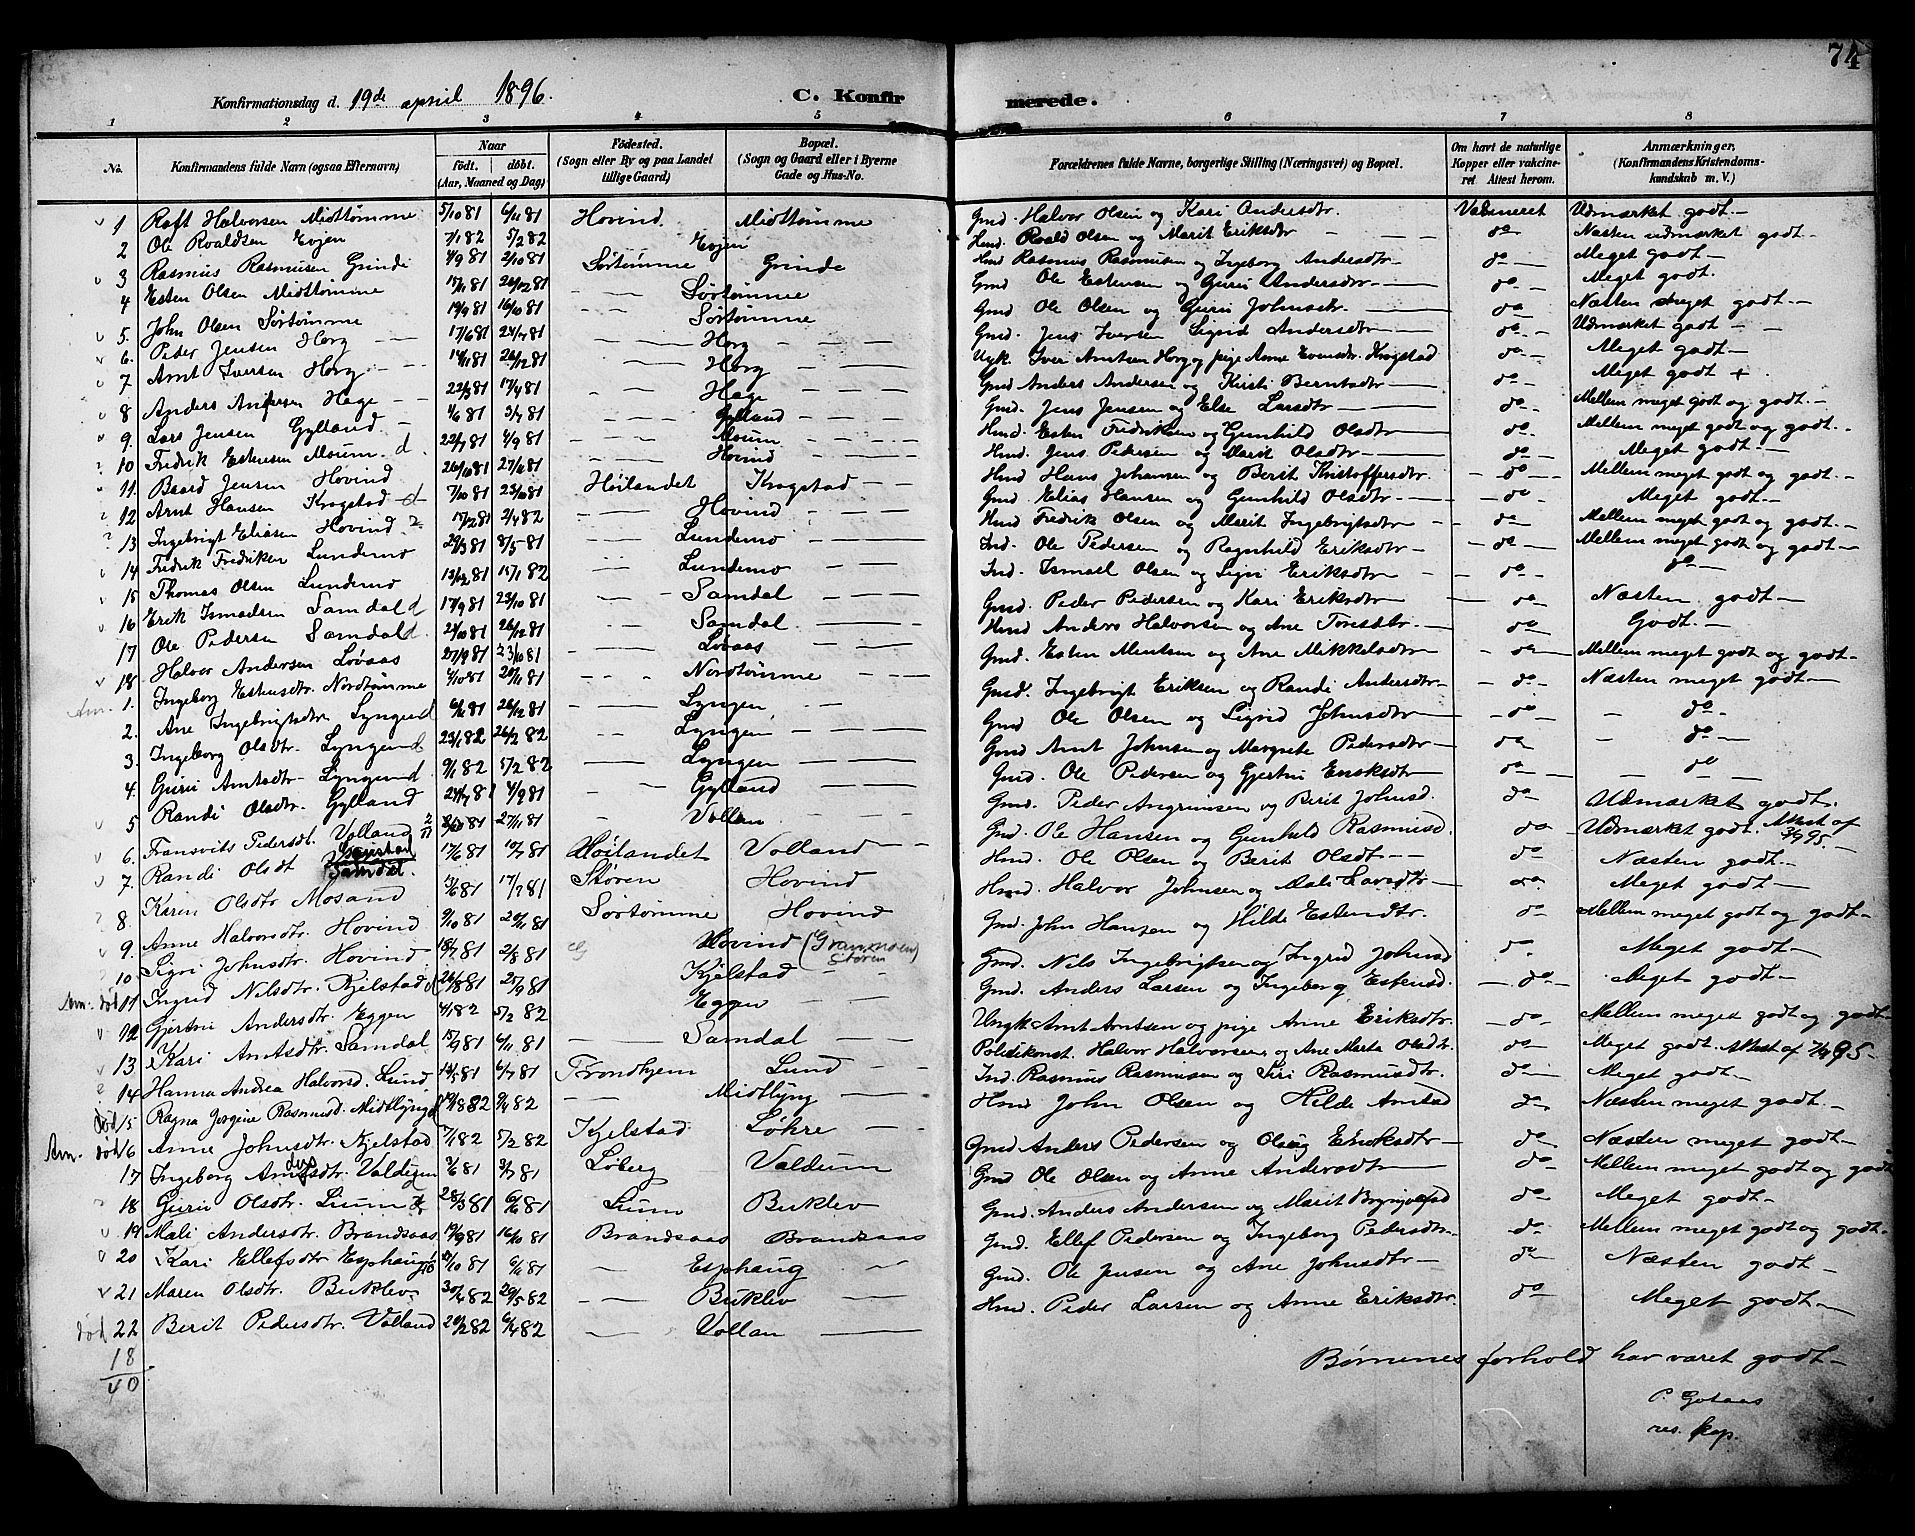 74
Konfirmationsdag d. 19de april 1896. C. Konfirmerede.
1 2 3 4 5 6 7 8
No. Konfirmandens fulde Navn (ogsaa Efternavn) Naar født. døbt. (Aar, Maaned og Dag) Fødested. (Sogn eller By og paa Landet tillige Gaard) Bopæl. (Sogn og Gaard eller i Byerne Gade og Hus-No. Forældrenes fulde Navne, borgerlige Stilling (Næringsvei) og Bopæl. Om havt de naturlige Kopper eller vakcineret Attest herom. Anmærkninger. (Konfirmandens Kristendomskundskab m. V.)
1 Halvorsen Midttømme 5/10 81 6/11 81 Hovind Midttømme Gmd. Halvor Olsen og Kari Andersdtr. Vaksineret Udmærket godt.
2 Ole Roaldsen Evjen 7/1 82 5/2 82 Evjen Hmd. Roald Olsen og Marit Eriksdtr do Næsten udmærket godt.
3 Rasmus Rasmusen Grinde 4/9 81 2/10 81 Sørtømme Grinde Hmd Rasmus Rasmusen og Ingeborg Andersdtr do Meget godt
4 Esten Olsen Midttømme 17/11 81 26/12 81 Sørtømme Gmd Ole Estensen og Guru Andersdtr do Meget godt.
5. John Olsen Sørtømme 19/9 81 16/10 81 Sørtømme Gmd Ole Olsen og Guru Johnsdtr. do Næsten meget godt.
6. Peder Jensen Horg 17/6 81 24/7 81 Horg Gmd. Jens Iversen Sigrid Andersdtr do Udmærket godt
7 Arnt Iversen Horg 14/11 81 26/12 81 Horg Ugk. Iver Arntsen Horg og pige Anne Evensdtr. Krogstad do Meget godt
8 Anders Andersen Hage 22/3 81 17/4 81 Hage Gmd Anders Andersen og Kirsti Berntsdtr do Meget godt +
9. Lars Jensen Gylland 1/6 81 3/7 81 Gylland Gmd. Jens Jensen og Else Larsdtr do Mellem meget godt og godt.
10 Fredrik Estensen Moum d. 22/7 81 4/9 81 Moum Hmd. Esten Fredriksen og Gunhild Olsdtr do Mellem meget godt og godt.
11. Baard Jensen Hovind 26/10 81 27/11 81 Hovind Hmd. Jens Petersen og Marit Olsdtr do Meget godt
12 Arnt Hansen Krogstad d 7/10 81 23/10 81 Høilandet Krogstad Hmd Hans Johansen og Berit Kristoffersdtr do Mellem meget godt og godt.
13 Ingebrigt Eliasen Hovind 17/12 81 2/4 82 Hovind Gmd. Elias Hansen og Gunhild Olsdtr. do Meget godt.
14 Fredrik Fredriksen Lundemo 29/3 81 8/5 81 Lundemo Hmd Fredrik Olsen og Marit Ingebrigtsdtr do Mellem meget godt og godt
15 Thomas Olsen Lundemo 13/12 81 15/1 82 Lundemo Ind. Ole Pedersen og Ragnhild Eriksdtr do Mellem meget godt og godt
16 Erik Ismaelsen Samdal d 17/9 81 23/10 81 Samdal Ind. Ismael Olsen og Sigri Eriksdtr do do
17 Ole Pedersen Samdal d. 21/10 81 26/12 81 Samdal Gmd. Peder Pedersen og Kari Eriksdtr do Næsten godt
18 Halvor Andersen Løvaas 27/9 81 23/10 81 Løvaas Hmd Anders Halvorsen og Ane Toresdtr. do Godt.
Am. 1. Ingeborg Estensdtr. Nordtømme 4/10 81 20/11 81 Nordtømme Gmd. Esten Mentsen og Ane Mikkelsdtr do Mellem meget godt og godt
2. Ane Ingebrigtsdtr Lyngen d 6/11 81 26/12 81 Lyngen Gmd. Ingebrigt Eriksen og Randi Andersdtr do Næsten meget godt
3. Ingeborg Olsdtr. Lyngen d 23/1 82 26/2 82 Lyngen Gmd Ole Olsen og Sigrid Johnsdtr do do
4. Guru Arntsdtr. Lyngen d. 9/1 82 5/2 82 Lyngen Gmd Arnt Johnsen og Margrete Pedersdtr do do
5 Randi Olsdtr. Gylland 24/7 81 4/9 81 Gylland Gmd. Ole Pedersen og Gjertru Eriksdtr do do
6. Fransvits Pedersdt. Volland 27/11 81 Vollan Gmd. Peder Angrimsen og Berit Johnsd. do Udmærket godt.
7. Randi Olsdt Samdal. 17/6 81 10/7 81 Høilandet Volland Gmd. Ole Hansen og Gunhild Rasmusd. do Udmærket godt. Attest af 3/9 95.
8. Karen Olsdtr Mosand 13/6 81 17/7 81 Støren Hovind Hmd. Ole Olsen og Berit Olsdt do Næsten godt.
9. Anne Halvorsdtr. Hovind 9/10 81 20/11 81 Sørtømme Hovind Hmd. Halvor Johnsen og Mali Larsdtr do Meget godt
10 Sigri Johnsdtr. Hovind 18/7 81 2/8 81 Hovind (Granmoen Støren) Gmd. John Hansen og Hilde Estensdtr. do Mellem meget godt og godt
Am. død 11 Ingrid Nilsdtr. Kjelstad 26/8 81 25/9 81 Kjelstad Gmd. Nils Ingebrigtsen og Ingrid Johnsd do Meget godt
12 Gjertru Andersdtr. Eggen 4/1 82 5/2 82 Eggen Gmd. Anders Larsen og Ingeborg Estensd. do Meget godt
13 Kari Arntsdtr. Samdal 15/9 81 6/11 81 Samdal Ungk. Arnt Arntsen og pige Anne Eriksdtr. do Mellem meget godt og godt
14 Hanna Andrea Halvorsd. Lund 14/5 81 6/7 81 Trondhjem Lund Politikonst. Halvor Halvorsen og Ane Marta Olsdtr. do Meget godt. Attest af 7/9 95.
død 15 Ragna Jørgine Rasmusd. Midtlyng 2/4 82 Midtlyng Ind. Rasmus Rasmusen og Siri Rasmusdtr. do Meget godt
Am. død 16 Anne Johnsdtr. Kjelstad 7/1 82 5/2 82 Kjelstad Løkre Hmd John Olsen og Hilde Arntsd do Næsten meget godt.
17 Ingeborg Andersdtr. Valdum 3/6 81 3/7 81 Løberg Valdum Gmd Anders Pedersen og Oleug Eriksdtr do Næsten meget godt
18 Guru Olsdtr. Lium 28/3 81 6/6 81 Lium Buklev Gmd Ole Olsen og Anne Andersdtr do Mellem meget godt og godt
19 Mali Andersdtr. Brandsaas 19/9 81 16/10 81 Brandsaas Brandsaas Gmd. Anders Andersen og Marit Brynjolfsd do Meget godt
20 Kari Ellefsdtr Esphaug 10/10 81 6/11 81 Esphaug Gmd. Ellef Pedersen og Ingeborg Pedersdtr do Mellem meget godt og godt.
21 Maren Olsdtr. Buklev 30/4 82 29/5 82 Buklev Gmd. Ole Jensen og Ane Johnsdtr do Næsten godt
død 22 Berit Pedersdtr. Volland 20/2 82 6/4 82 Vollan Hmd. Peder Larsen og Anne Eriksdtr. do Meget godt
18
40
Børnenes forhold har været godt
P. Gotaas
res. kap.